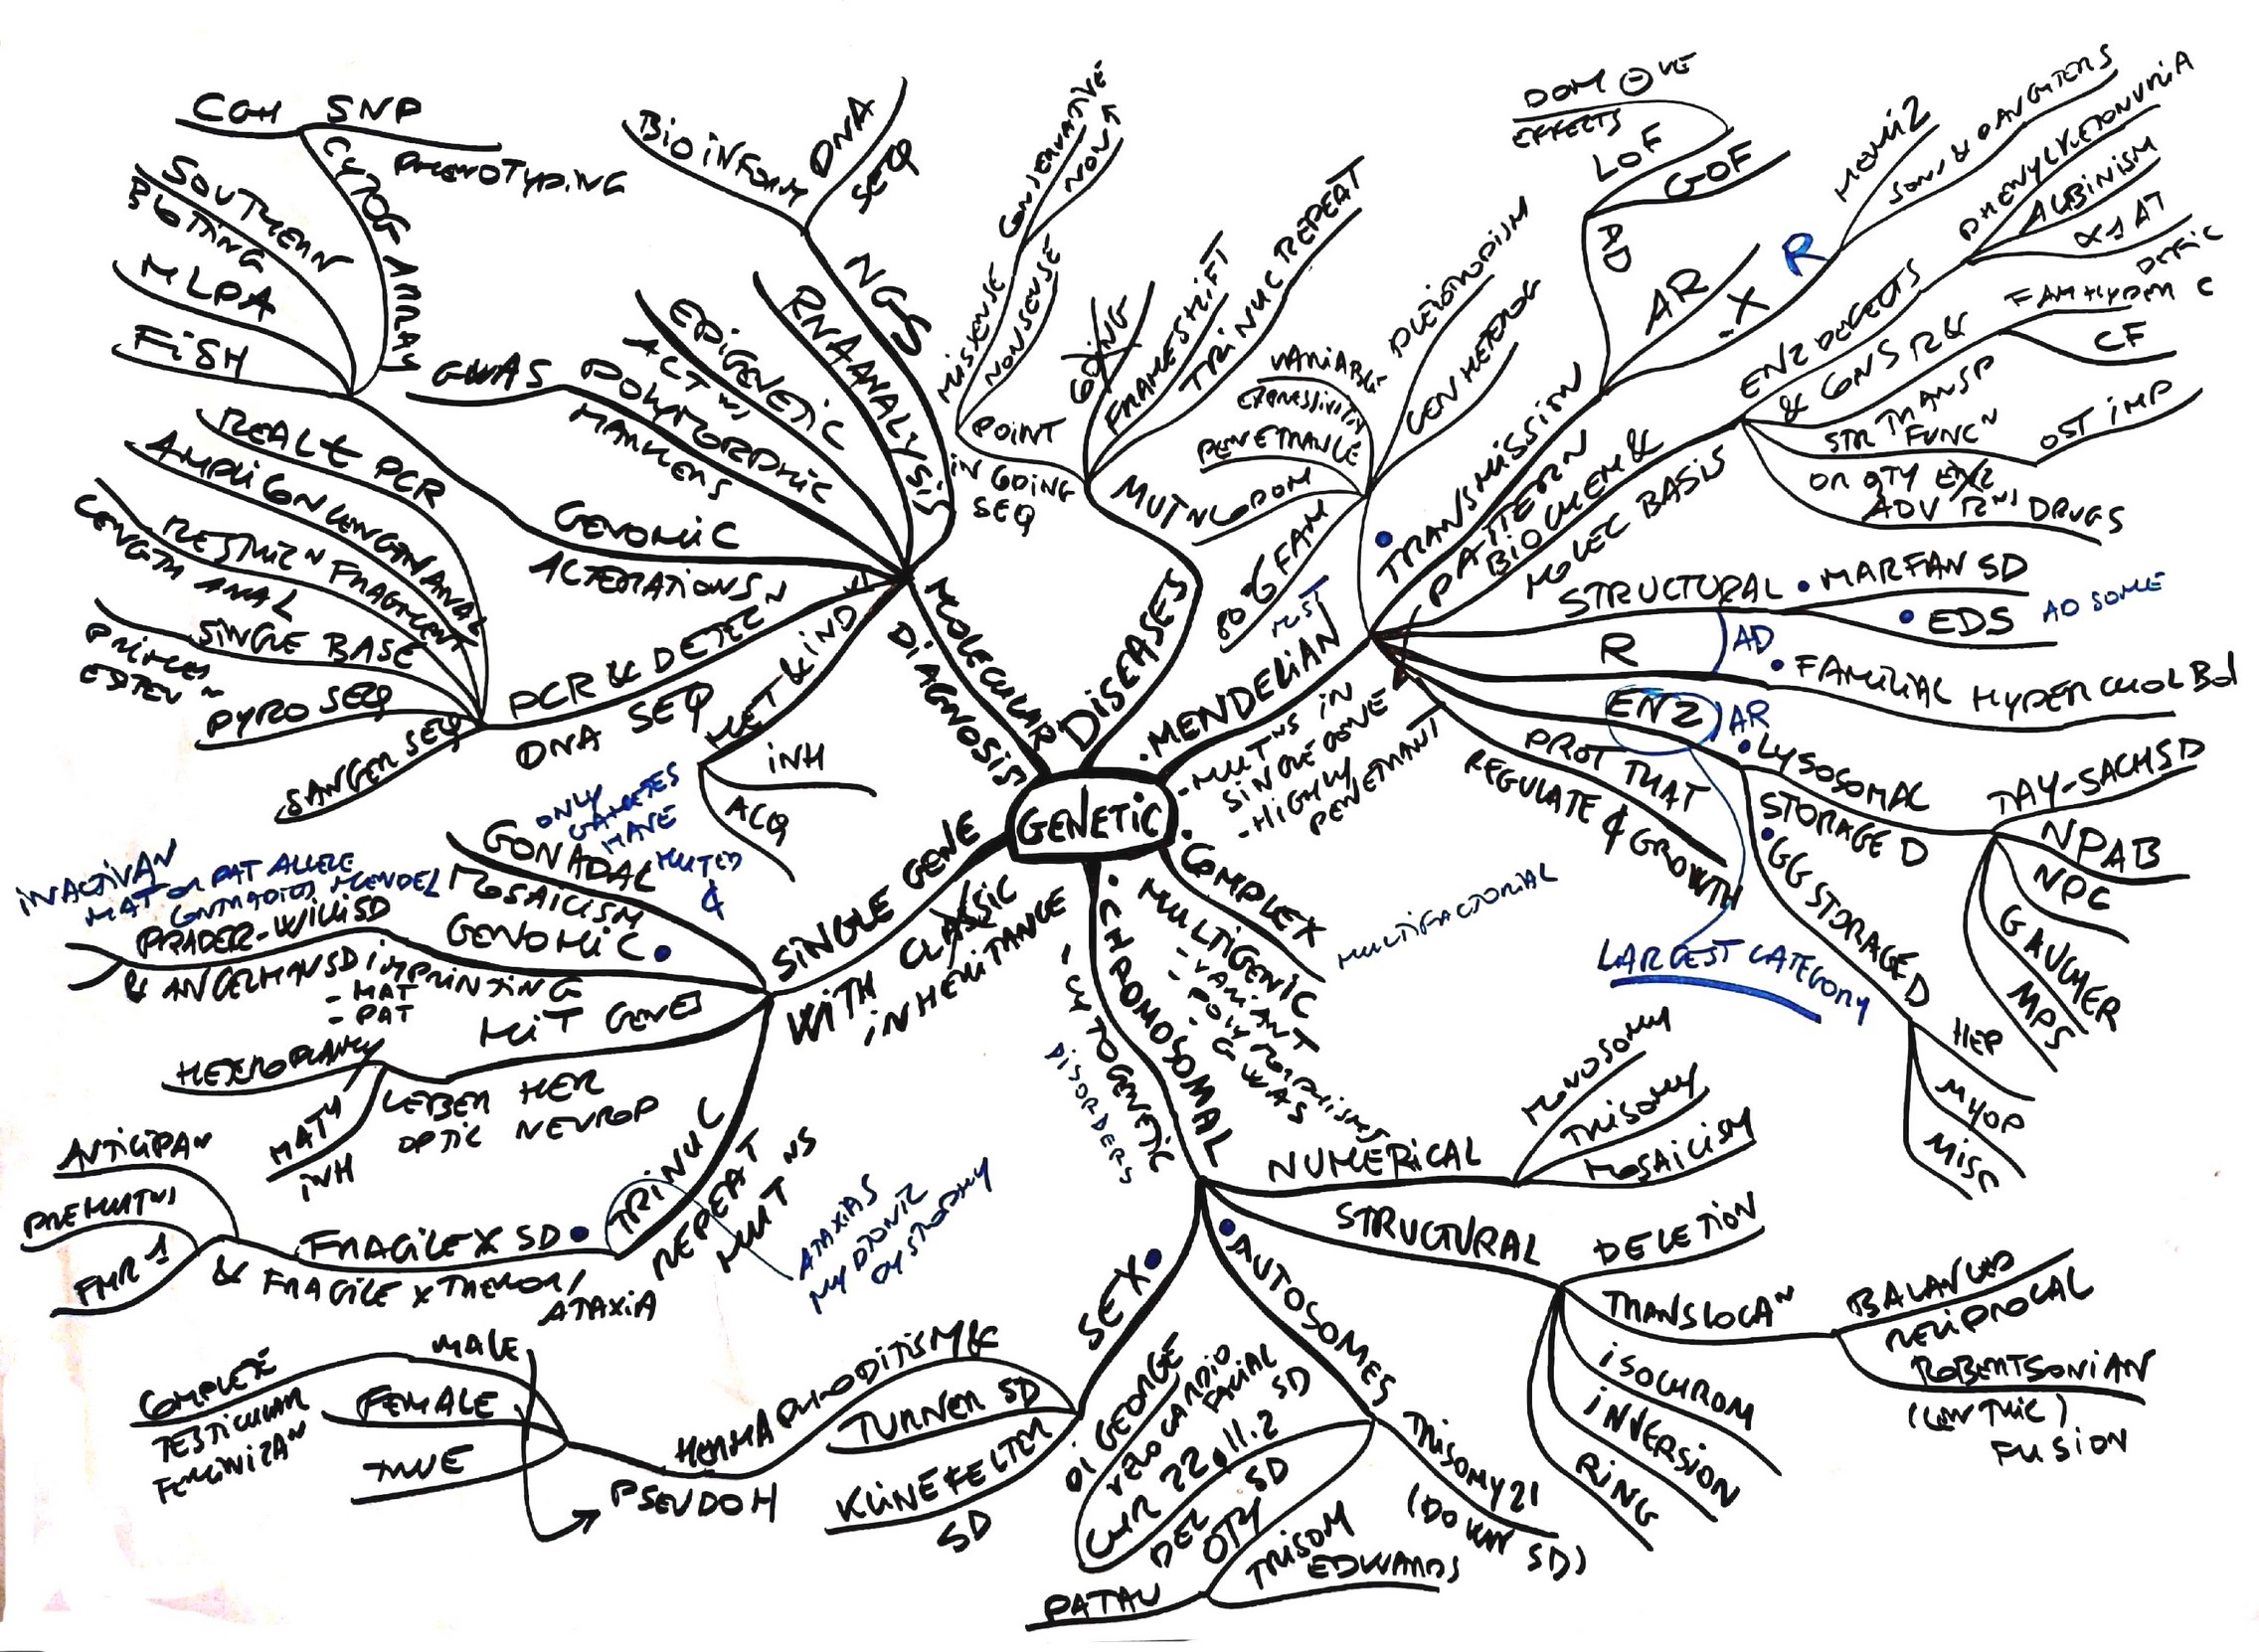 GENETIC
DISEASES
MUTN
GDOM
POINT
IN GDING
SEQ
MISSENSE
NONSENSE
CONSERVATIVE
FRAMESHIFT
TRINUC REPEAT
.MENDELIAN
MST
-MUTNS IN
SINGLE GENE
-HIGHLY
PENETRANT
80 G FAM
PENETRANCE
VARIABLE
EXPRESSIVITY
PLEIOTROPISM
GEN HETEROG
TRANSMISSION
PATTERN
AD
LOF
GOF
DOM ⊖VE
EFFECTS
AR
-X
R
SONS & DAUGHTERS
BIOCHEM &
MOLEC BASIS
ENZ DEFECTS
& CONS
PHENYLKETONURIA
ALBINISM
α1 AT
DEFIC
R &
TRANSP
FAM HYPER C
CF
STR
FUNCN
OST IMP
OR QTY
ADV RNS DRUGS
STRUCTURAL
MARFAN SD
EDS
AD SOME
R
AD
FAMILIAL HYPERCHOL
ENZ
AR
LYSOSOMAL
STORAGE D
TAY-SACHS D
NPAB
NPC
GAUCHER
MPS
GG STORAGE D
HEP
MYOP
MISC
LARGEST CATEGORY
PROT THAT
REGULATE ¢ GROWTH
COMPLEX
MULTIGENIC
MULTIFACTORIAL
-VARIANT
-POLYMORPHISMS
-GWAS
CHROMOSOMAL
-CYTOGENETIC
DISORDERS
NUMERICAL
MONOSOMY
TRISOMY
MOSAICISM
STRUCTURAL
DELETION
TRANSLOCAN
BALANCED
RECIPROCAL
ROBERTSONIAN
(CENTRIC)
FUSION
ISOCHROM
INVERSION
RING
AUTOSOMES
TRISOMY 21
(DOWN SD)
TRISOM
EDWARDS
PATAU
CHR 22q11.2
DEL SD
DI GEORGE
VELOCARDIO
FACIAL
SD
SEX
HERMAPHRODITISM &
PSEUDOH
TURNER SD
KLINEFELTER
SD
MALE
FEMALE
TRUE
COMPLETE
TESTICULAR
FEMINIZAN
SINGLE GENE
WITH CLASSIC
INHERITANCE
GONADAL
MOSAICISM
ONLY
GAMETES
HAVE
MUTED
¢
GENOMIC
IMPRINTING
-MAT
-PAT
PRADER-WILLI SD
& ANGELMAN SD
INACTIVAN
MAT OR PAT ALLELE
CONTRADICTS MENDEL
MIT GENES
LEBER HER
OPTIC NEUROP
HETEROPLASMY
MATY
INH
TRINUC
REPEAT
MUTNS
ATAXIAS
MYOTONIC
DYSTROPHY
FRAGILE X SD
& FRAGILE X TREMOR/
ATAXIA
ANTICIPAN
PREMUTNS
FMR1
MOLECULAR
DIAGNOSIS
MET & IND
INH
ACQ
PCR & DETEC N
DNA SEQ
REAL t PCR
AMPLICON LENGTH ANAL
RESTRICN FRAGMENT
LENGTH ANAL
SINGLE BASE
PRIMER
EXTENN
PYRO SEQ
SANGER SEQ
GENOMIC
ALTERATIONS
FISH
MLPA
SOUTHERN
BLOTTING
CYTOG ARRAYS
CGH
SNP
PHENOTYPING
POLYMORPHIC
MARKERS
GWAS
EPIGENETIC
ACTNS
RNA ANALYSIS
NGS
BIOINFORM
DNA
SEQ